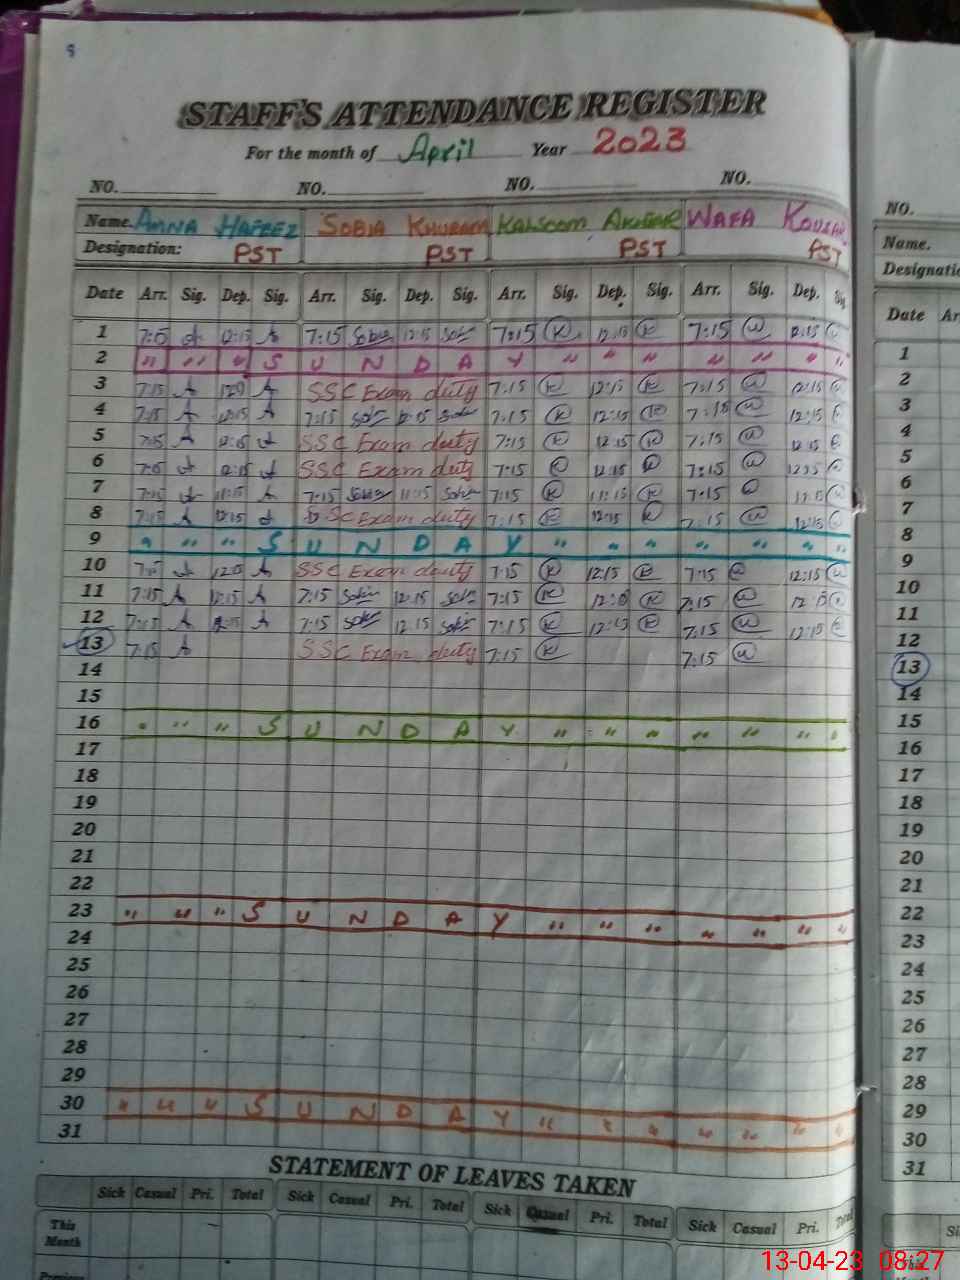 8
STAFF'S ATTENDANCE REGISTER
For the month of April Year 2023
NO. NO. NO. NO.
Name. AMNA HAFEEZ SOBIA KHURAM KALSOOM AKHTAR WAFA KOUSAR
Designation: PST PST PST PST
Date Arr. Sig. Dep. Sig. Arr. Sig. Dep. Sig. Arr. Sig. Dep. Sig. Arr. Sig. Dep. Sig.
1 A 12:15 A 7:15 Sobia 12:15 7:15 K 12:15 K 7:15 W 12:15
2 " " " S U N D A Y " " " " " " "
3 7:15 A A SSC Exam duty 7:15 K 12:15 K 7:15 W 12:15
4 7:15 A 12:15 A 7:15 12:15 7:15 K 12:15 K 7:15 W 12:15
5 7:15 A 12:15 A SSC Exam duty 7:15 K 12:15 K 7:15 W 12:15
6 A 12:15 A SSC Exam duty 7:15 K 12:15 K 7:15 W 12:15
7 7:15 A 11:15 A 7:15 11:15 7:15 K 11:15 K 7:15 W 11:15 W
8 7:15 A 12:15 A SSC Exam duty 7:15 K 12:15 K 7:15 W 12:15
9 " " " S U N D A Y " " " " " " "
10 7:15 A A SSC Exam duty 7:15 K 12:15 K 7:15 W 12:15 W
11 7:15 A 12:15 A 7:15 12:15 7:15 K K 7:15 W
12 7:15 A 12:15 A 7:15 12:15 7:15 K 12:15 K 7:15 W 12:15
13 7:15 A SSC Exam duty 7:15 K 7:15 W
14
15
16 " " " S U N D A Y " " " " " " "
17
18
19
20
21
22
23 " " " S U N D A Y " " " " " " "
24
25
26
27
28
29
30 " " " S U N D A Y " " " " " " "
31
STATEMENT OF LEAVES TAKEN
Sick Casual Pri. Total Sick Casual Pri. Total Sick Casual Pri. Total Sick Casual Pri. Total
This
Month
NO.
Name.
Date
1
2
3
4
5
6
7
8
9
10
11
12
13
14
15
16
17
18
19
20
21
22
23
24
25
26
27
28
29
30
31
13-04-23 08:27